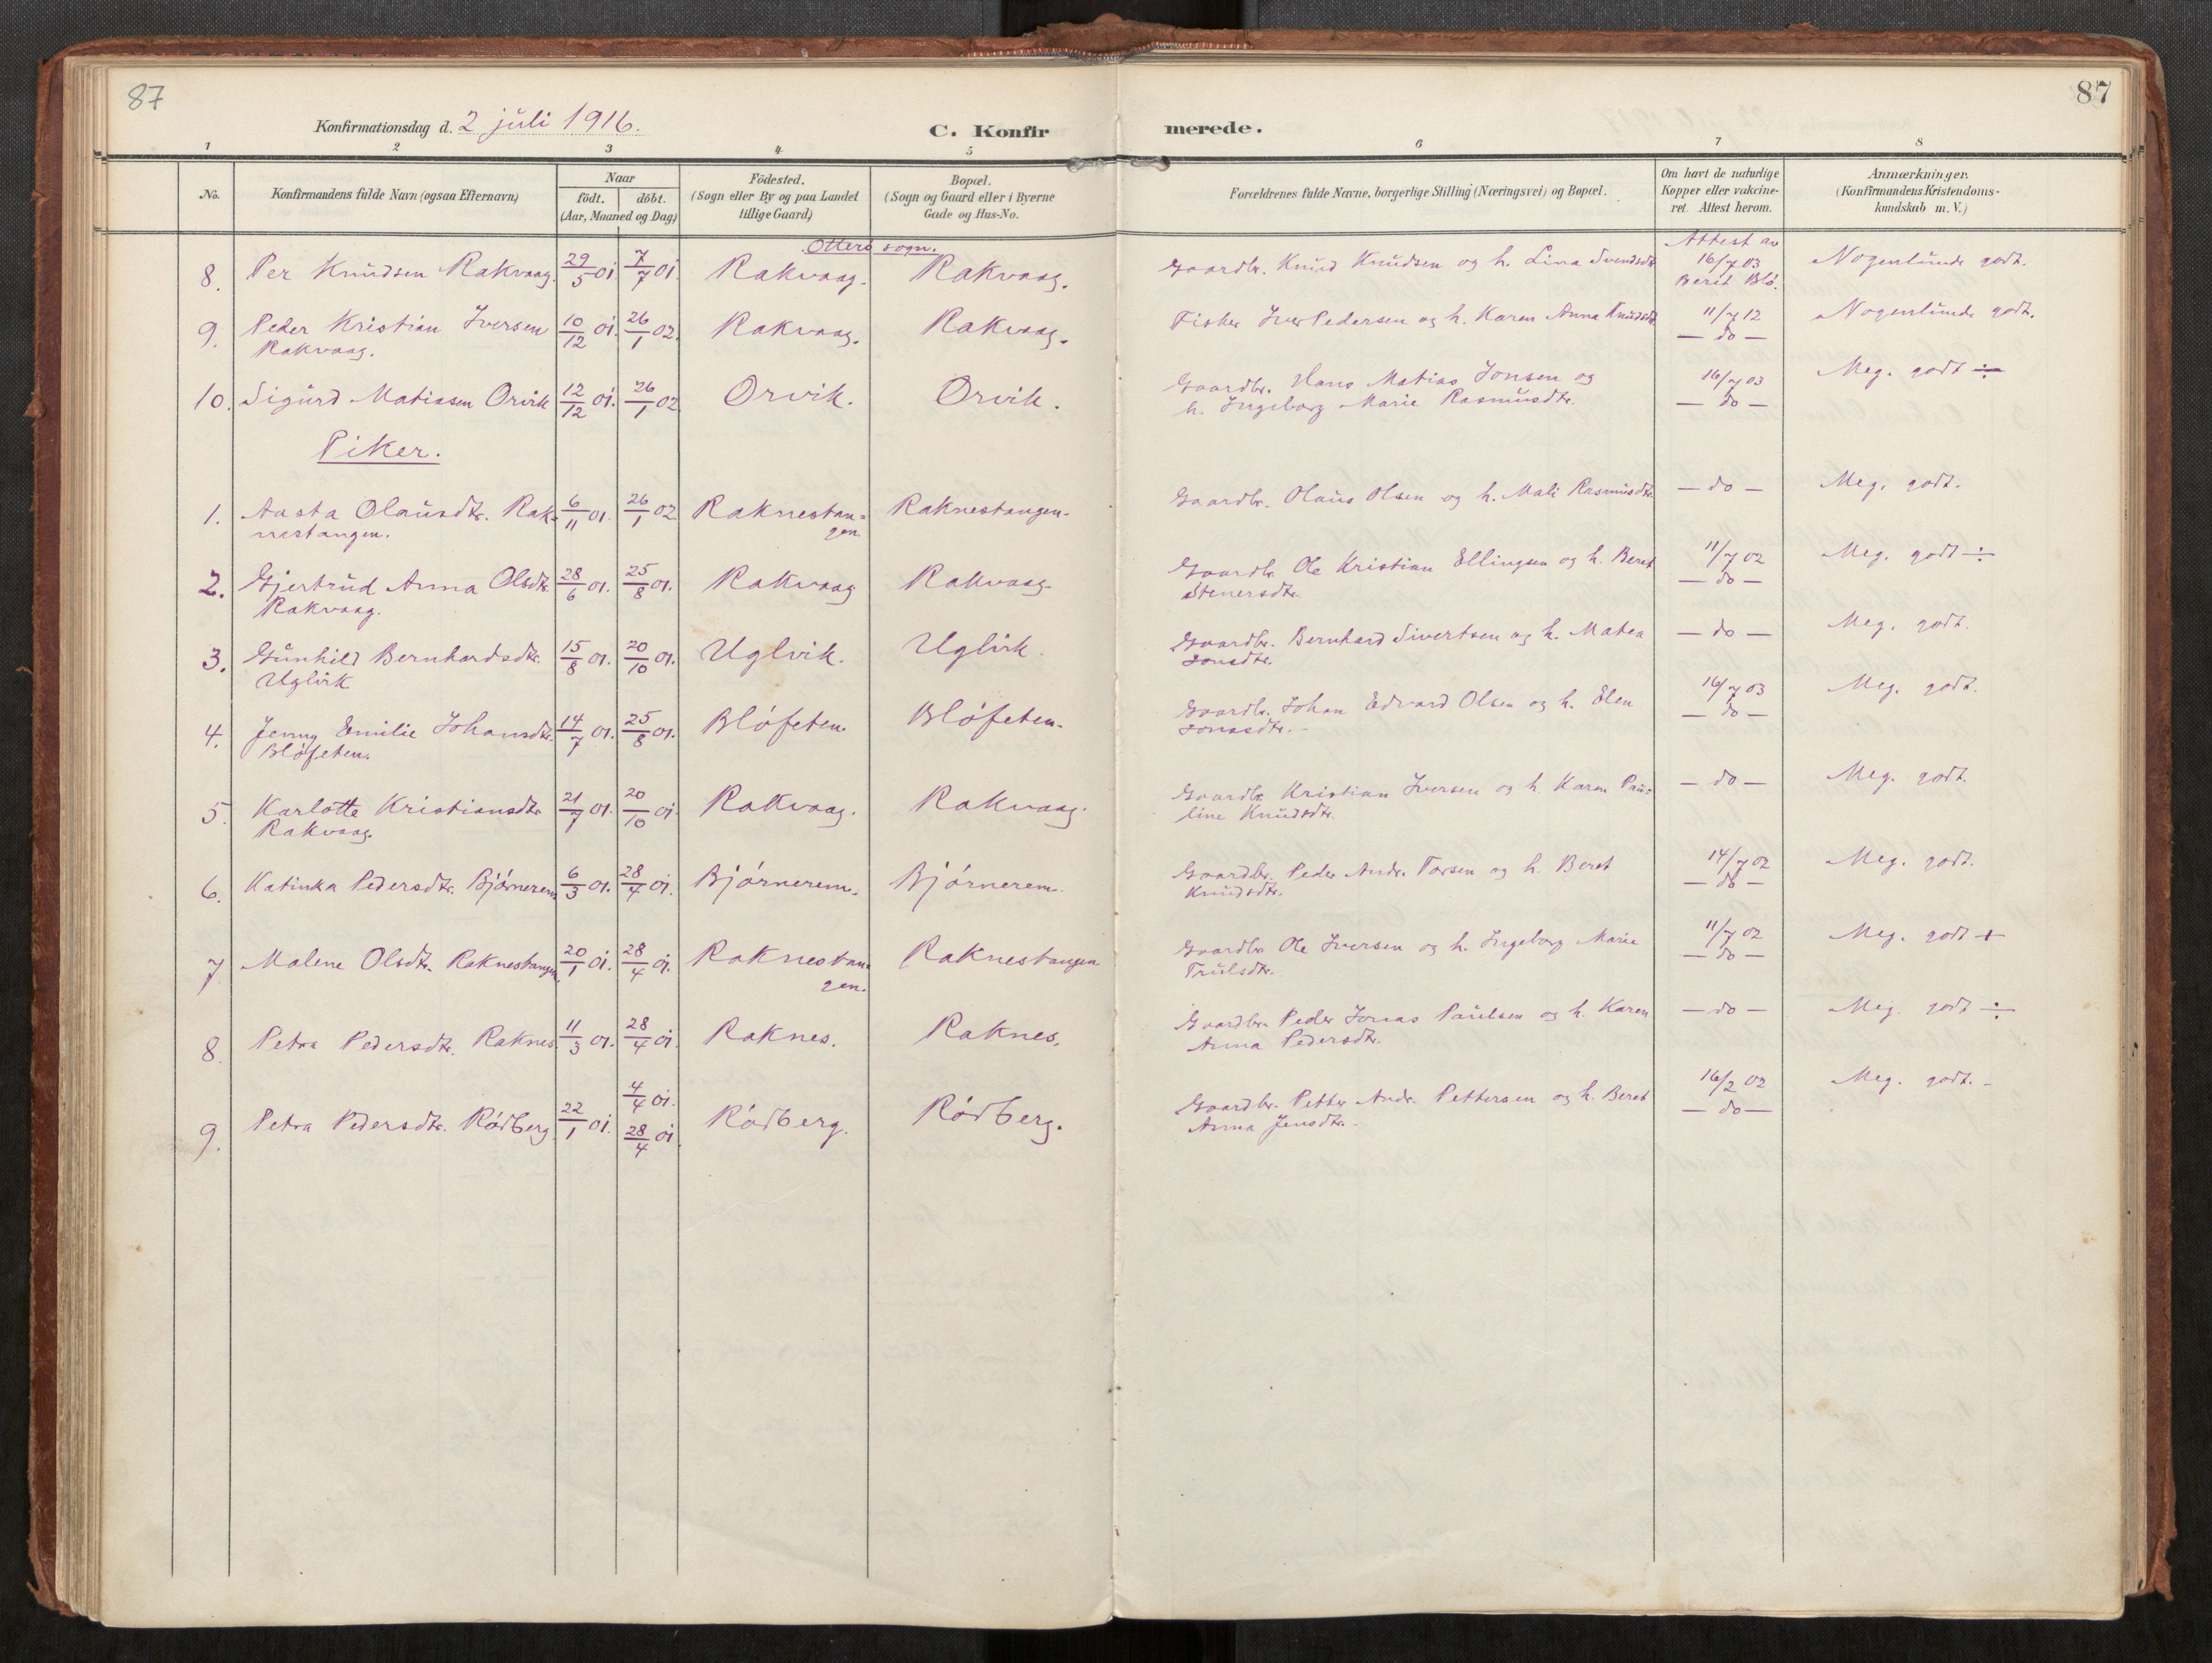 87
87
Konfirmationsdag d. 2 juli 1916.
C. Konfirmerede.
1 2 3 4 5 6 7 8
No.
Konfirmandens fulde Navn (ogsaa Efternavn)
Naar
födt. döbt.
(Aar, Maaned og Dag)
Födested.
(Sogn eller By og paa Landet
tillige Gaard)
Bopæl.
(Sogn og Gaard eller i Byerne
Gade og Hus-No.
Forældrenes fulde Navne, borgerlige Stilling (Næringsvei) og Bopæl.
Om havt de naturlige
Kopper eller vakcine-
ret. Attest herom.
Anmærkninger.
(Konfirmandens Kristendoms-
kundskab m. V.)
Otterö sogn.
8. Per Knudsen Rakvaag. 29/5 01. 7/7 01. Rakvaag. Rakvaag. Gaardbr. Knud Knudsen og h. Lina Svendsdtr. Attest av
16/7 03
Berit Blö.
Nogenlunde godt.
9. Peder Kristian Iversen 10/12 01. 26/1 02. Rakvaag. Rakvaag. Fisker Iver Pedersen og h. Karen Anna Knudsdtr. 11/7 12 Nogenlunde godt.
Rakvaag. — do —
10. Sigurd Matiasen Orvik 12/12 01. 26/1 02 Orvik. Orvik. Gaardbr. Hans Matias Jonsen og 16/7 03 Meg. godt ÷
h. Ingeborg Marie Rasmusdtr. — do —
Piker.
1. Aasta Olausdtr. Rak- 6/11 01. 26/1 02 Raknestan- Raknestangen. Gaardbr. Olaus Olsen og h. Mali Rasmusdtr. — do — Meg. godt.
nestangen. gen.
2. Gjertrud Anna Olsdtr. 28/6 01. 25/8 01. Rakvaag Rakvaag. Gaardbr. Ole Kristian Ellingsen og h. Beret 11/7 02 Meg. godt ÷
Rakvaag. Stenersdtr. — do —
3. Gunhild Bernhardsdtr. 15/8 01. 20/10 01. Uglvik. Uglvik. Gaardbr. Bernhard Sivertsen og h. Matea — do — Meg. godt.
Uglvik Jonsdtr.
4. Jenny Emilie Johansdtr. 14/7 01. 25/8 01. Blöfeten. Blöfeten. Gaardbr. Johan Edvard Olsen og h. Elen 16/7 03 Meg. godt.
Blöfeten. Jonasdtr. — do —
5. Karlotte Kristiansdtr. 21/7 01. 20/10 01. Rakvaag. Rakvaag. Gaardbr. Kristian Iversen og h. Karen Pau- — do — Meg. godt.
Rakvaag. line Knudsdtr.
6. Katinka Pedersdtr. Björnerem. 6/3 01. 28/4 01. Björnerem. Björnerem. Gaardbr. Peder Andr. Torsen og h. Beret 14/7 02 Meg. godt.
Knudsdtr. — do —
7. Malene Olsdtr. Raknestangen. 20/1 01. 28/4 01. Raknestan- Raknestangen Gaardbr. Ole Iversen og h. Ingeborg Marie 11/7 02 Meg. godt +
gen. Trulsdtr. — do —
8. Petra Pedersdtr. Raknes. 11/3 01. 28/4 01. Raknes. Raknes. Gaardbr. Peder Jonas Paulsen og h. Karen — do — Meg. godt ÷
Anna Pedersdtr.
9. Petra Pedersdtr. Rödberg. 22/1 01. 4/4 01. 28/4 01. Rödberg. Rödberg. Gaardbr. Petter Andr. Pettersen og h. Beret 16/2 02 Meg. godt.
Anna Jensdtr. — do —